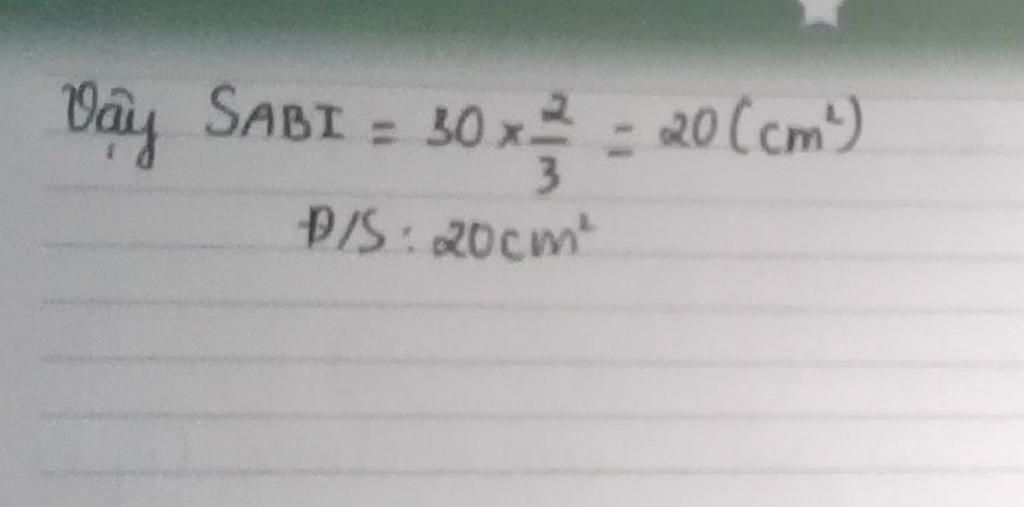 Vậy SABI = 30 × 2/3 = 20 (cm²)
Đ/S: 20cm²